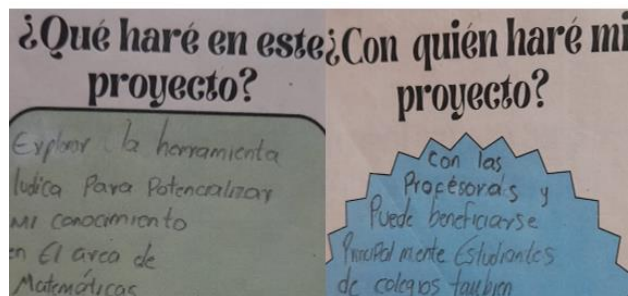 ¿Qué haré en este
proyecto?
Explorar la herramienta
ludica Para Potencializar
Mi conocimiento
en El area de
Matemáticas
¿Con quién haré mi
proyecto?
con las
Profesoras y
Puede beneficiarse
Principalmente Estudiantes
de colegios tambien